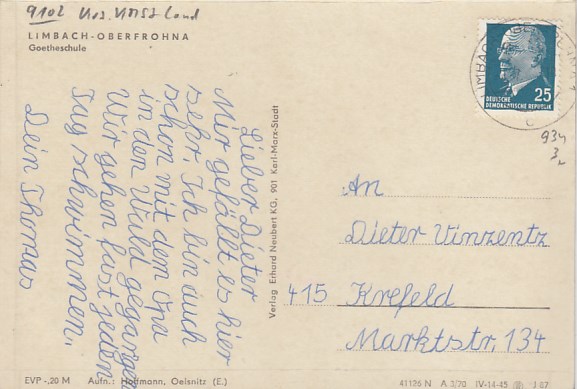 9102 Krs. Land
LIMBACH-OBERFROHNA
Goetheschule
DEUTSCHE
DEMOKRATISCHE REPUBLIK
25
934
3
Lieber Dieter
Mir gefällt es hier
sehr. Ich bin auch
schon mit dem Opa
in den Wald gegangen
Wir gehen fast jeden
Tag schwimmen.
Dein Thomas
Verlag Erhard Neubert KG, 901 Karl-Marx-Stadt
An
Dieter Vinzentz
415 Krefeld
Marktstr. 134
EVP -,20 M Aufn.: Hoffmann, Oelsnitz (E.)
41126 N A 3/70 IV-14-45 J-87